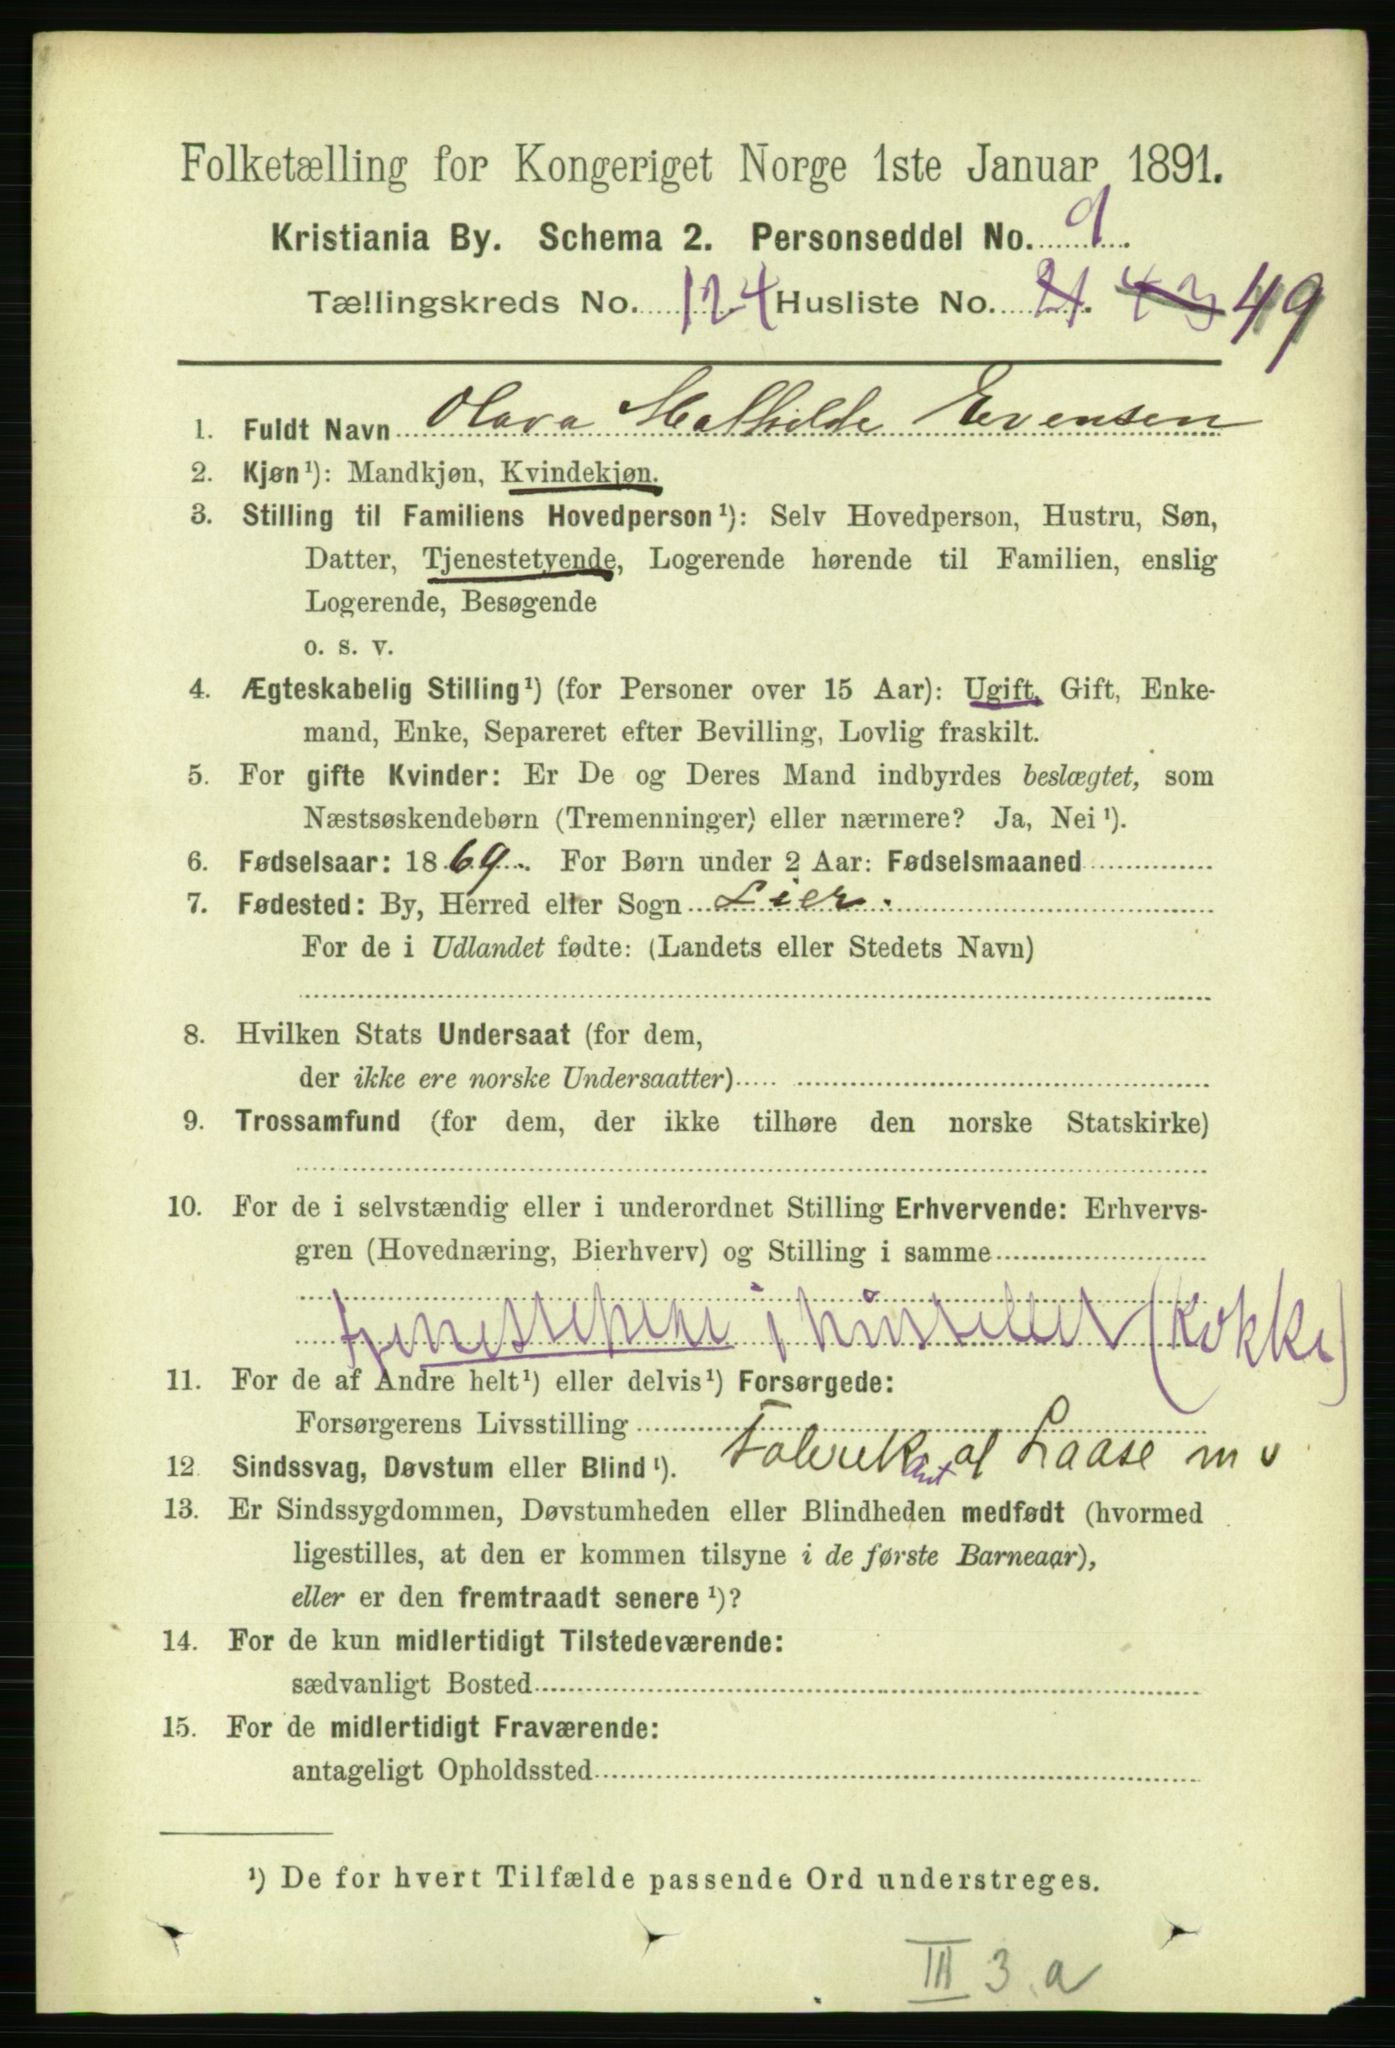 Folketælling for Kongeriget Norge 1ste Januar 1891.
Kristiania By. Schema 2. Personseddel No. 9.
Tællingskreds No. 124 Husliste No. 21. 43 49
1. Fuldt Navn Olava Mathilde Evensen
2. Kjøn¹): Mandkjøn, Kvindekjøn.
3. Stilling til Familiens Hovedperson¹): Selv Hovedperson, Hustru, Søn,
Datter, Tjenestetyende, Logerende hørende til Familien, enslig
Logerende, Besøgende
o. s. v.
4. Ægteskabelig Stilling¹) (for Personer over 15 Aar): Ugift, Gift, Enke-
mand, Enke, Separeret efter Bevilling, Lovlig fraskilt.
5. For gifte Kvinder: Er De og Deres Mand indbyrdes beslægtet, som
Næstsøskendebørn (Tremenninger) eller nærmere? Ja, Nei¹).
6. Fødselsaar: 1869. For Børn under 2 Aar: Fødselsmaaned
7. Fødested: By, Herred eller Sogn Lier.
For de i Udlandet fødte: (Landets eller Stedets Navn)
8. Hvilken Stats Undersaat (for dem,
der ikke ere norske Undersaatter)
9. Trossamfund (for dem, der ikke tilhøre den norske Statskirke)
10. For de i selvstændig eller i underordnet Stilling Erhvervende: Erhvervs-
gren (Hovednæring, Bierhverv) og Stilling i samme
tjenestepike i husstellet (Kokke)
11. For de af Andre helt¹) eller delvis¹) Forsørgede:
Forsørgerens Livsstilling
Fabrikant af Laase m v
12 Sindssvag, Døvstum eller Blind¹).
13. Er Sindssygdommen, Døvstumheden eller Blindheden medfødt (hvormed
ligestilles, at den er kommen tilsyne i de første Barneaar),
eller er den fremtraadt senere¹)?
14. For de kun midlertidigt Tilstedeværende:
sædvanligt Bosted
15. For de midlertidigt Fraværende:
antageligt Opholdssted
¹) De for hvert Tilfælde passende Ord understreges.
III 3 a